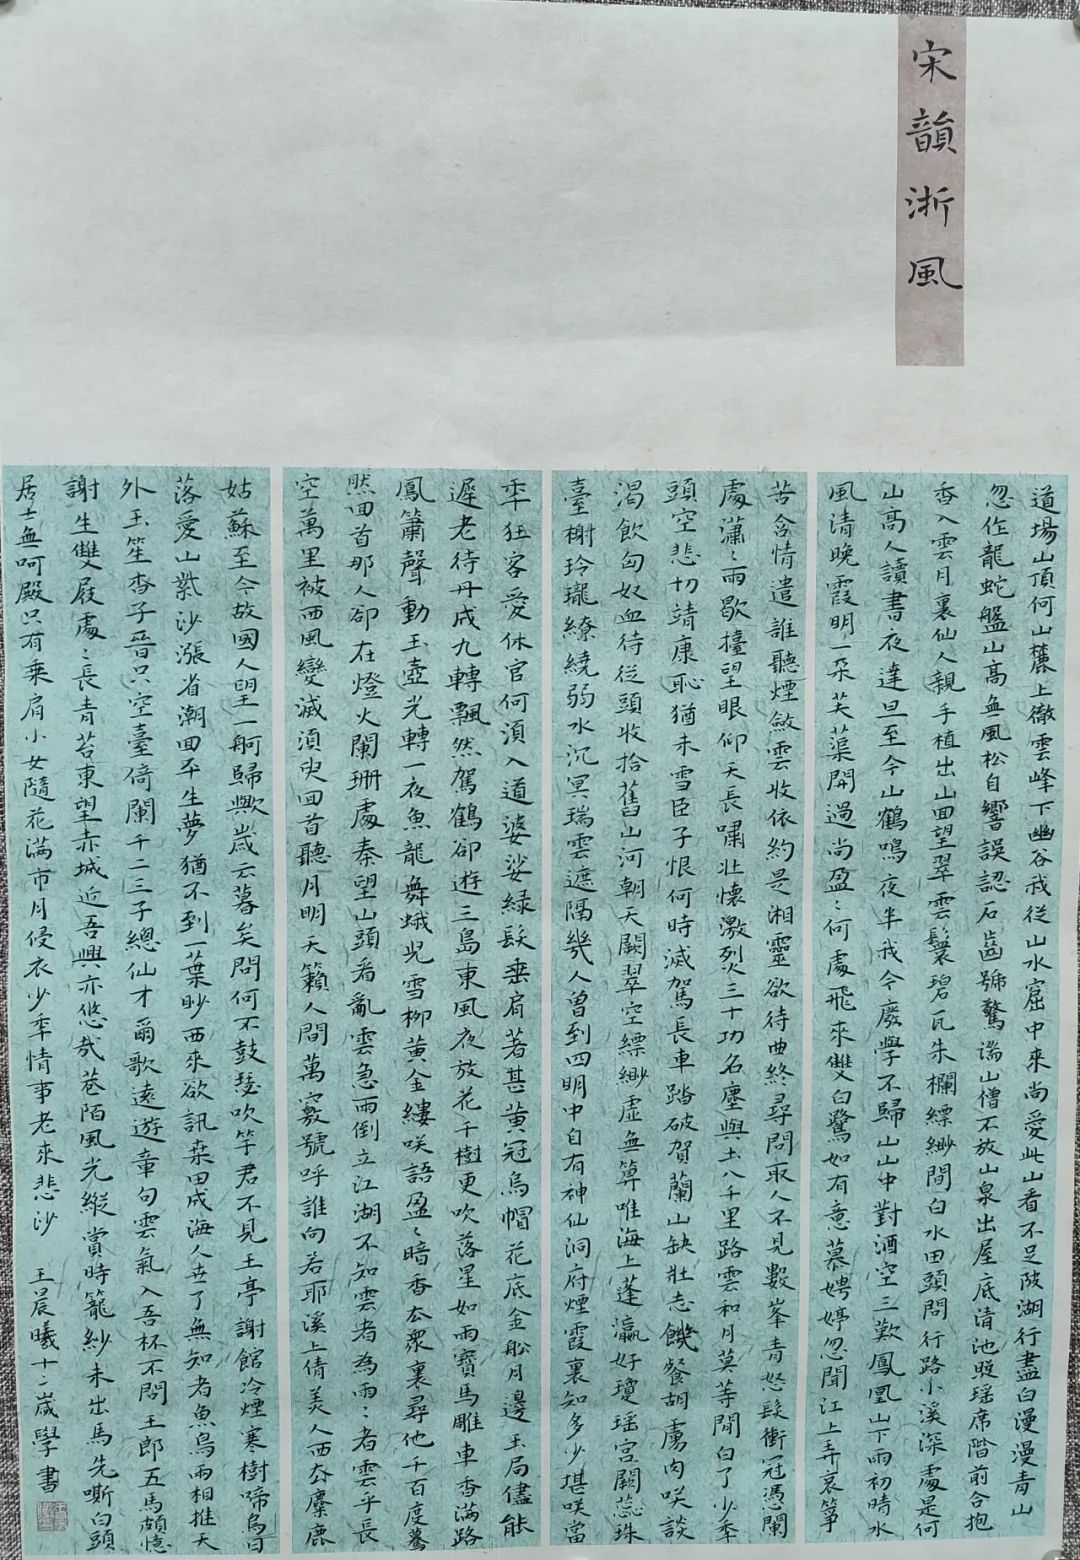 宋韻浙風
道場山頂何山麓上徹雲峰下幽谷我從山水窟中來尚愛此山看不足陂湖行盡白漫漫青山
忽作龍蛇盤山高無風松自響誤認石齒號驚湍山僧不放山泉出屋底清池照瑤席階前合抱
香入雲月裏仙人親手植出山回望翠雲鬟碧瓦朱欄縹緲間白水田頭問行路小溪深處是何
山高人讀書夜達旦至今山鶴鳴夜半我今廢學不歸山山中對酒空三歎鳳凰山下雨初晴水
風清晚霞明一朵芙蕖開過尚盈〻何處飛來雙白鷺如有意慕娉婷忽聞江上弄哀箏
苦含情遣誰聽煙斂雲收依約是湘靈欲待曲終尋問取人不見數峯青怒髮衝冠憑闌
處瀟〻雨歇擡望眼仰天長嘯壯懷激烈三十功名塵與土八千里路雲和月莫等閒白了少年
頭空悲切靖康恥猶未雪臣子恨何時滅駕長車踏破賀蘭山缺壯志饑餐胡虜肉咲談
渴飲匈奴血待從頭收拾舊山河朝天闕翠空縹緲虛無算唯海上蓬瀛好瓊瑤宮闕蕊珠
臺榭玲瓏繚繞弱水沉冥瑞雲遮隔幾人曾到四明中自有神仙洞府煙霞裏知多少堪咲當
年狂客愛休官何須入道婆娑綠髮垂肩著甚黃冠烏帽花底金船月邊玉局儘能
遲老待丹成九轉飄然駕鶴卻遊三島東風夜放花千樹更吹落星如雨寶馬雕車香滿路
鳳簫聲動玉壺光轉一夜魚龍舞蛾兒雪柳黃金縷咲語盈〻暗香去眾裏尋他千百度驀
然回首那人卻在燈火闌珊處秦望山頭看亂雲急雨倒立江湖不知雲者為雨〻者雲乎長
空萬里被西風變滅須臾回首聽月明天籟人間萬竅號呼誰向若耶溪上倩美人西去麋鹿
姑蘇至今故國人望一舸歸歟歲云暮矣問何不鼓瑟吹竽君不見王亭謝館冷煙寒樹啼烏日
落愛山紫沙漲省潮回平生夢猶不到一葉眇西來欲訊桑田成海人世了無知者魚鳥兩相推天
外玉笙杳子晉只空臺倚闌干二三子總仙才爾歌遠遊章句雲氣入吾杯不問王郎五馬頗憶
謝生雙屐處〻長青苔東望赤城近吾興亦悠哉巷陌風光縱賞時籠紗未出馬先嘶白頭
居士無呵殿只有乘肩小女隨花滿市月侵衣少年情事老來悲沙 王晨曦十二歲學書